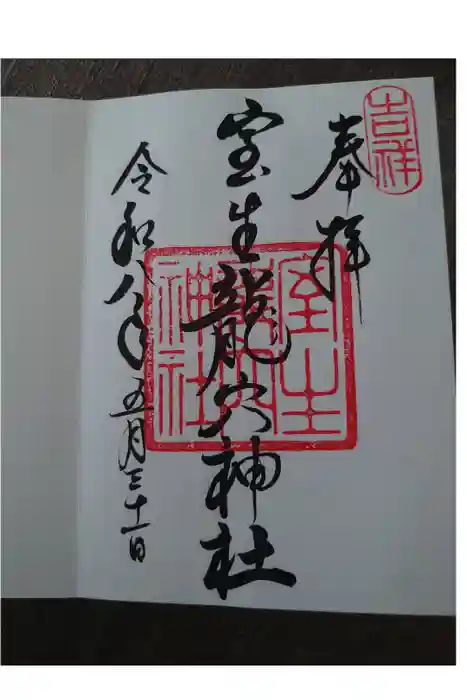 吉祥
奉拝
室生龍穴神社
室生
龍穴
神社
令和八年五月三十一日